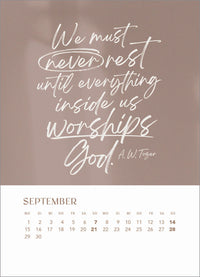 We must
never rest
until everything
inside us
worships
God.
A. W. Tozer
SEPTEMBER
MO DI MI DO FR SA SO MO DI MI DO FR SA SO
1 2 3 4 5 6 7 8 9 10 11 12 13 14
15 16 17 18 19 20 21 22 23 24 25 26 27 28
29 30